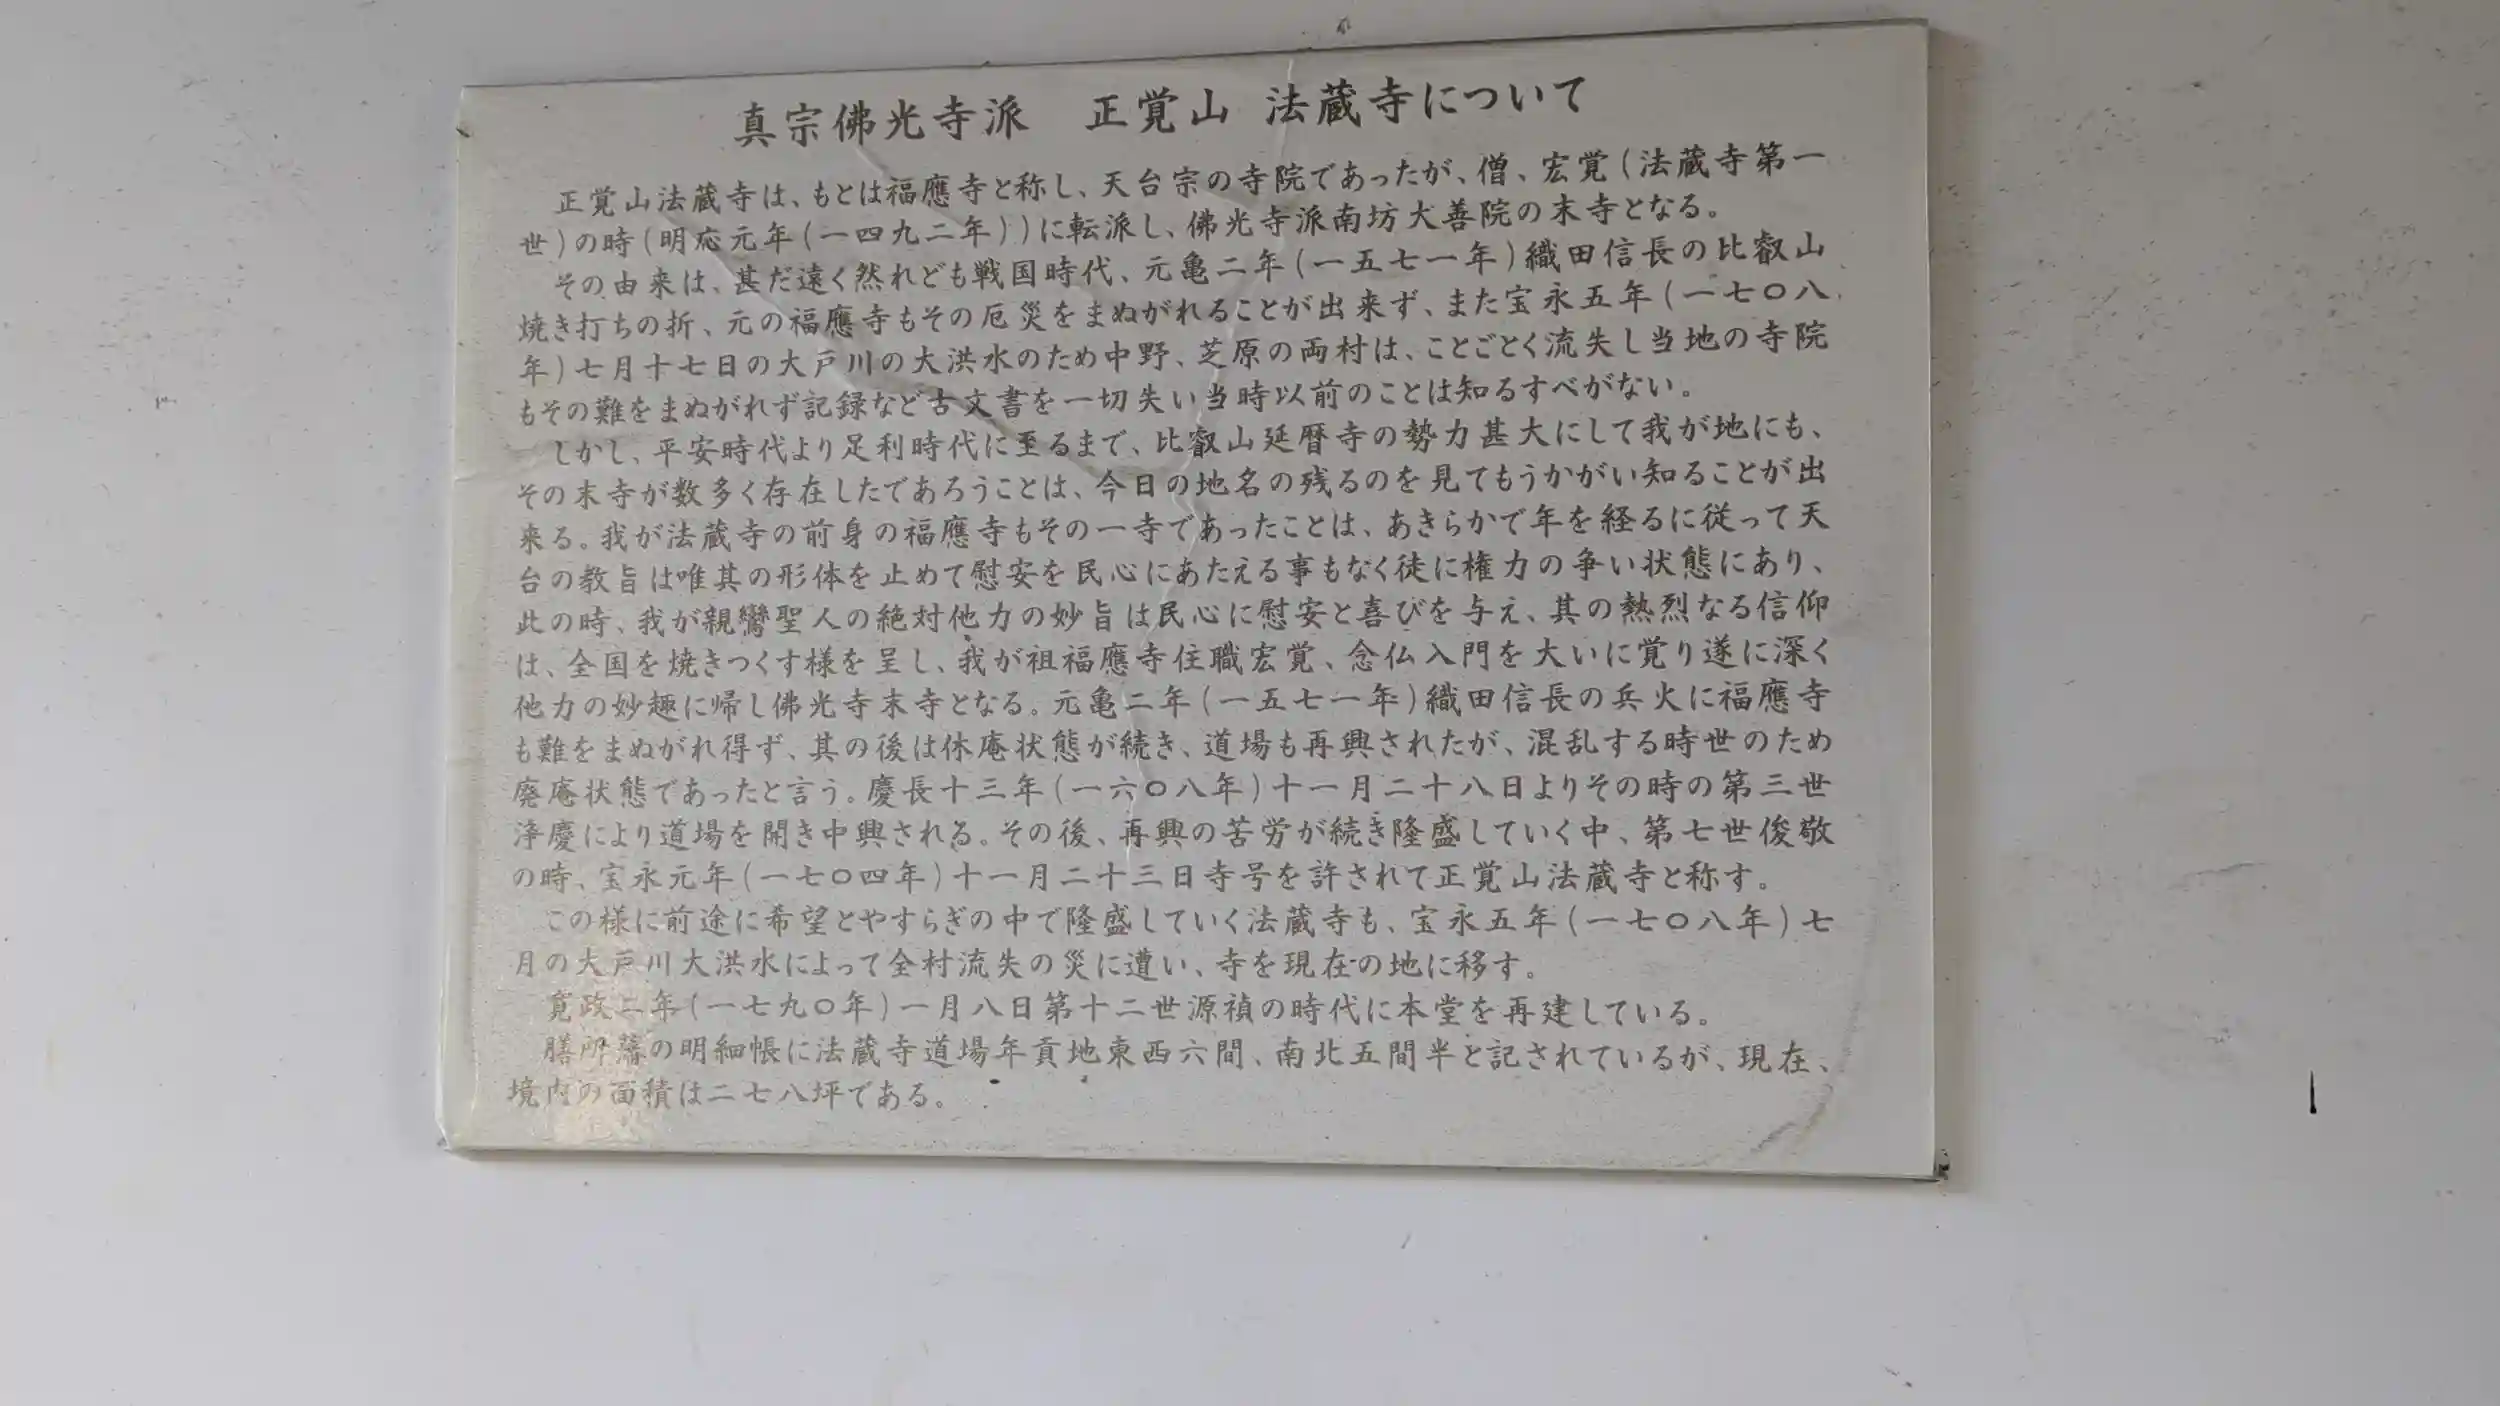 真宗佛光寺派　正覚山 法蔵寺について
正覚山法蔵寺は、もとは福應寺と称し、天台宗の寺院であったが、僧、宏覚(法蔵寺第一
世)の時(明応元年(一四九二年))に転派し、佛光寺派南坊大善院の末寺となる。
その由来は、甚だ遠く然れども戦国時代、元亀二年(一五七一年)織田信長の比叡山
焼き打ちの折、元の福應寺もその厄災をまぬがれることが出来ず、また宝永五年(一七〇八
年)七月十七日の大戸川の大洪水のため中野、芝原の両村は、ことごとく流失し当地の寺院
もその難をまぬがれず記録など古文書を一切失い当時以前のことは知るすべがない。
しかし、平安時代より足利時代に至るまで、比叡山延暦寺の勢力甚大にして我が地にも、
その末寺が数多く存在したであろうことは、今日の地名の残るのを見てもうかがい知ることが出
来る。我が法蔵寺の前身の福應寺もその一寺であったことは、あきらかで年を経るに従って天
台の教旨は唯其の形体を止めて慰安を民心にあたえる事もなく徒に権力の争い状態にあり、
此の時、我が親鸞聖人の絶対他力の妙旨は民心に慰安と喜びを与え、其の熱烈なる信仰
は、全国を焼きつくす様を呈し、我が祖福應寺住職宏覚、念仏入門を大いに覚り遂に深く
他力の妙趣に帰し佛光寺末寺となる。元亀二年(一五七一年)織田信長の兵火に福應寺
も難をまぬがれ得ず、其の後は休庵状態が続き、道場も再興されたが、混乱する時世のため
廃庵状態であったと言う。慶長十三年(一六〇八年)十一月二十八日よりその時の第三世
浄慶により道場を開き中興される。その後、再興の苦労が続き隆盛していく中、第七世俊敬
の時、宝永元年(一七〇四年)十一月二十三日寺号を許されて正覚山法蔵寺と称す。
この様に前途に希望とやすらぎの中で隆盛していく法蔵寺も、宝永五年(一七〇八年)七
月の大戸川大洪水によって全村流失の災に遭い、寺を現在の地に移す。
寛政二年(一七九〇年)一月八日第十二世源禎の時代に本堂を再建している。
膳所藩の明細帳に法蔵寺道場年貢地東西六間、南北五間半と記されているが、現在、
境内の面積は二七八坪である。